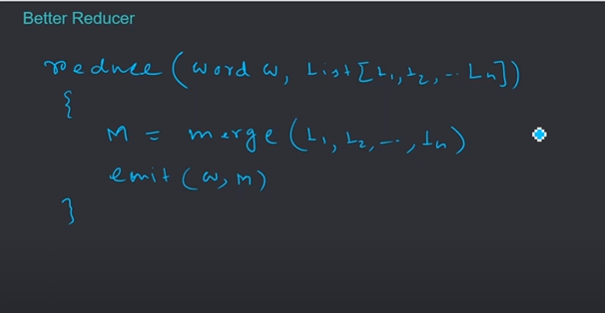 Better Reducer
reduce (word w, List [L1, L2, -- Ln])
{
M = merge (L1, L2, --, Ln)
emit (w, M)
}